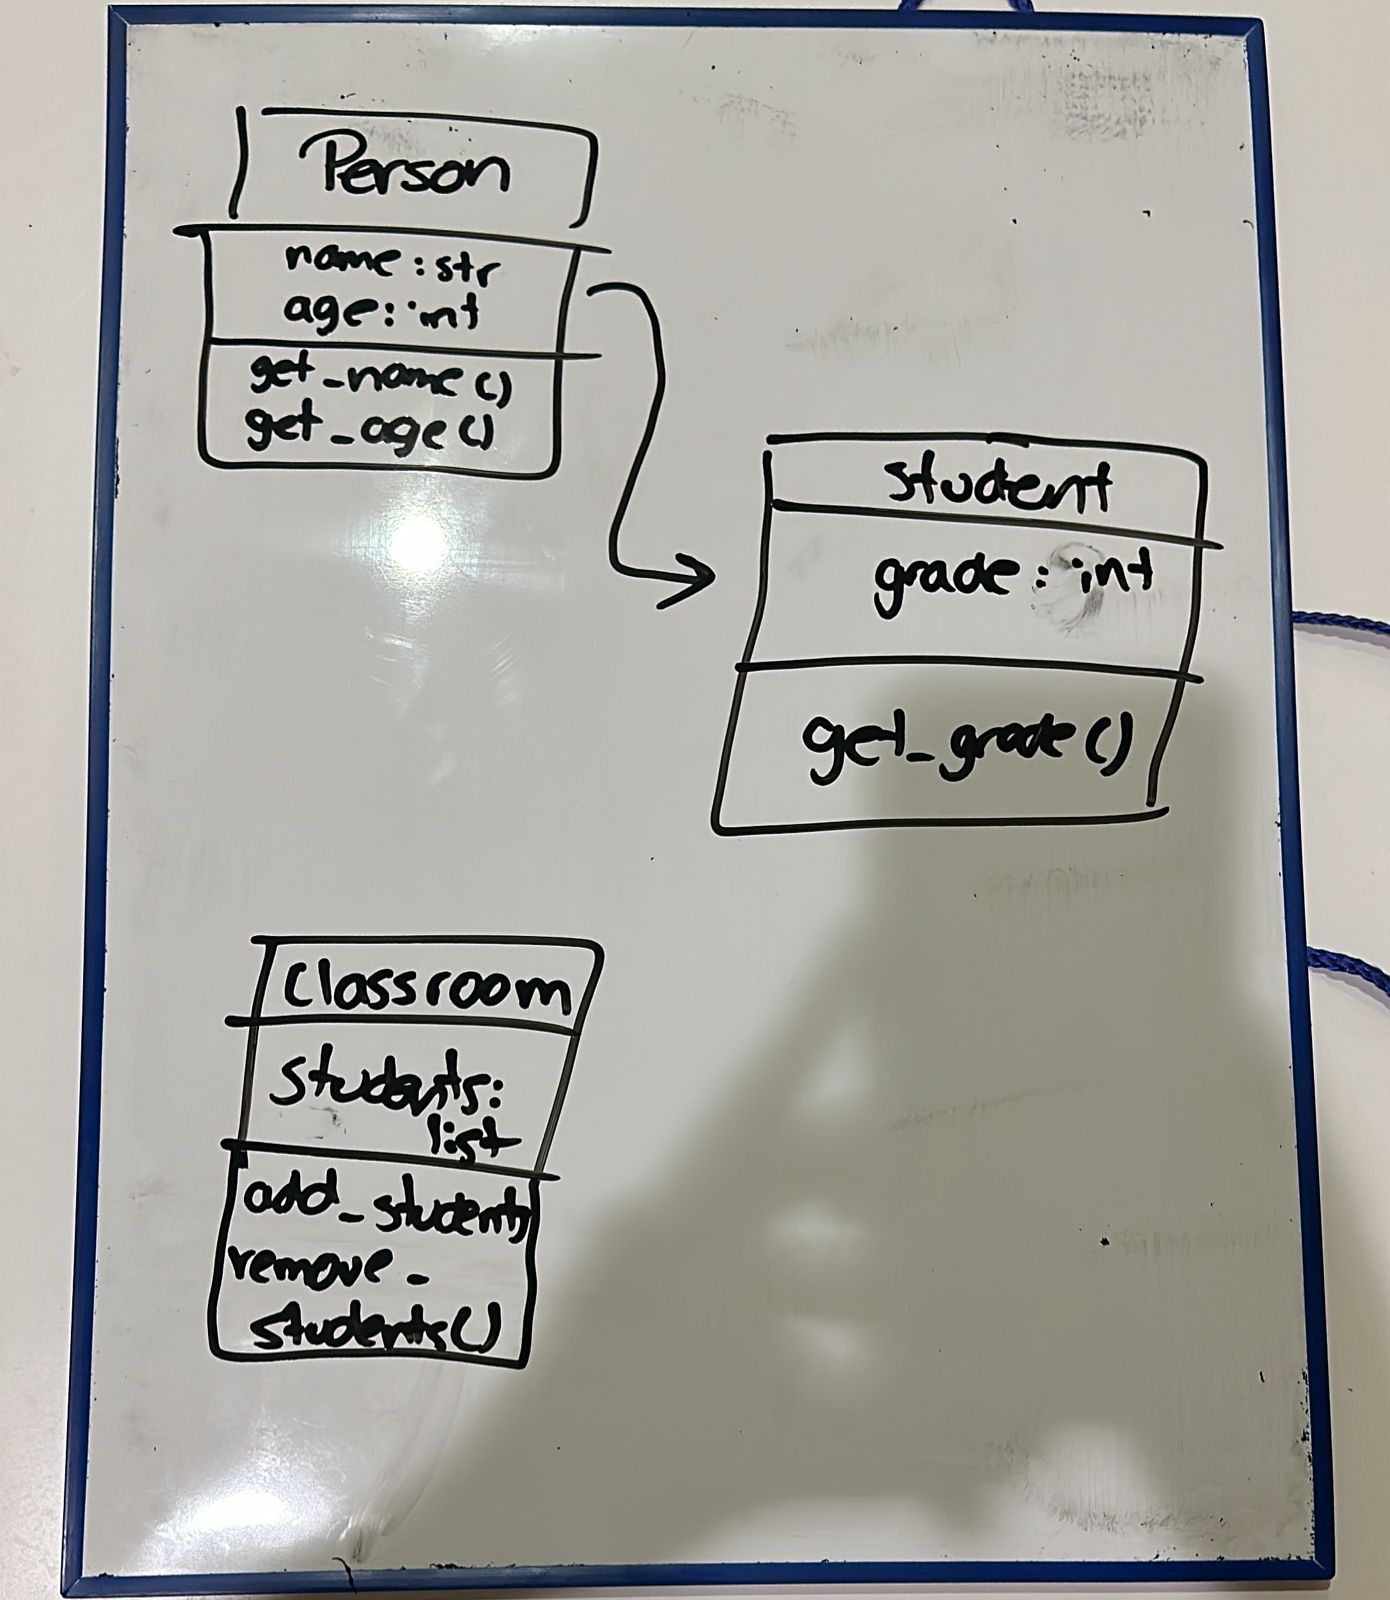 Person
name: str
age: int
get_name()
get_age()
student
grade: int
get_grade()
Classroom
students:
list
add_students
remove_
students()